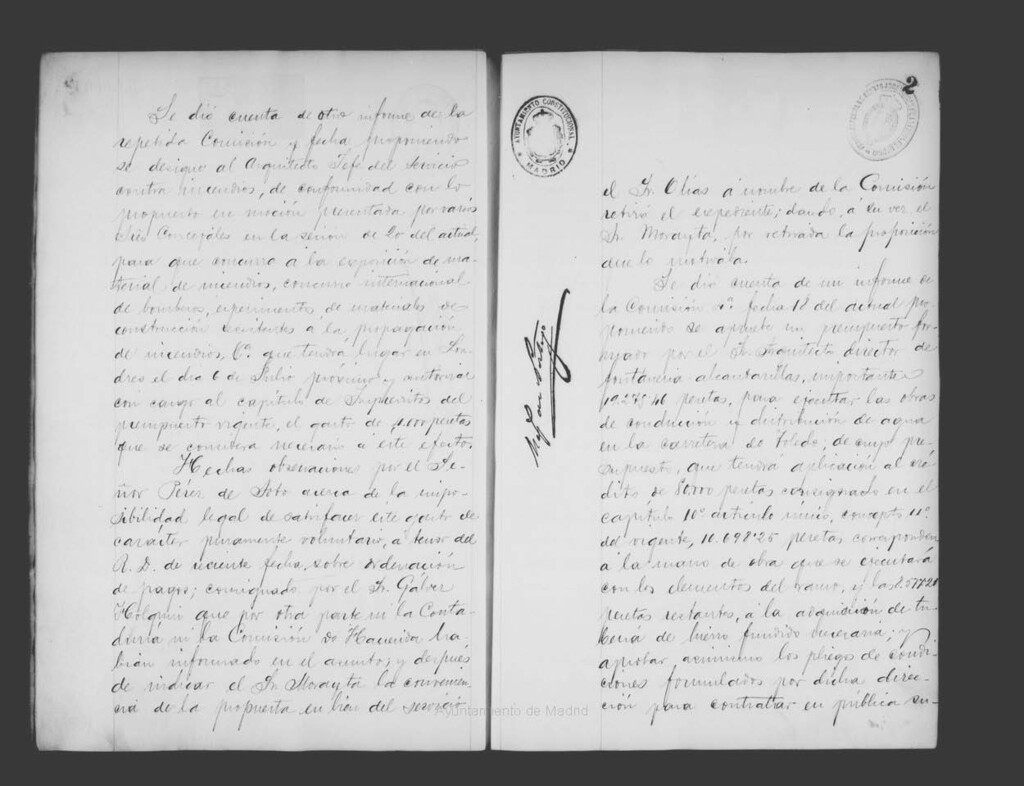 Se dió cuenta de otro informe de la
repetida Comisión y fecha proponiendo
se designe al Arquitecto Jefe del Servicio
contra incendios, de conformidad con lo
propuesto en moción presentada por varios
Sres Concejales en la sesión de 20 del actual,
para que concurra á la exposición de ma-
terial de incendios, concurso internacional
de bomberos, experimentos de materiales de
construcción resistentes a la propagación
de incendios, &ª que tendrá lugar en Lon-
dres el dia 6 de Julio próximo y autorizar
con cargo al capítulo de Imprevistos del
presupuesto vigente, el gasto de pesetas
que se considera necesario á este efecto.
Hechas observaciones por el Se-
ñor Pérez de Soto acerca de la impo-
sibilidad legal de satisfacer este gasto de
carácter puramente voluntario, a tenor del
R. D. de reciente fecha, sobre ordenación
de pagos; consignado por el Sr. Gálvez
Holguin que por otra parte ni la Conta-
duría ni la Comisión de Hacienda ha-
bian informado en el asunto; y después
de indicar el Sr. Morayta la convenien-
cia de la propuesta en bien del servicio
AYUNTAMIENTO CONSTITUCIONAL
MADRID
2
el Sr. Olías á nombre de la Comisión
retiró el expediente; dando, á su vez, el
Sr. Morayta, por retirada la proposición
que lo motivaba.
Se dió cuenta de un informe de
la Comisión 4ª fecha 18 del actual pro-
poniendo se apruebe un presupuesto for-
mado por el Sr. Arquitecto director de
fontanería-alcantarillas, importante
19.275'46 pesetas, para ejecutar las obras
de conducción y distribución de agua
en la carretera de Toledo; de cuyo pre-
supuesto, que tendrá aplicación al cré-
dito de 80.000 pesetas consignado en el
capítulo 10º artículo único, concepto 11º
del vigente, 10.698'25 pesetas corresponden
á la mano de obra que se ejecutará
con los elementos del ramo, y las 8.577'21
pesetas restantes, á la adquisición de tu-
bería de hierro fundido necesaria; y
aprobar asimismo los pliegos de condi-
ciones formulados por dicha direc-
ción para contratar en pública su-
Ayuntamiento de Madrid